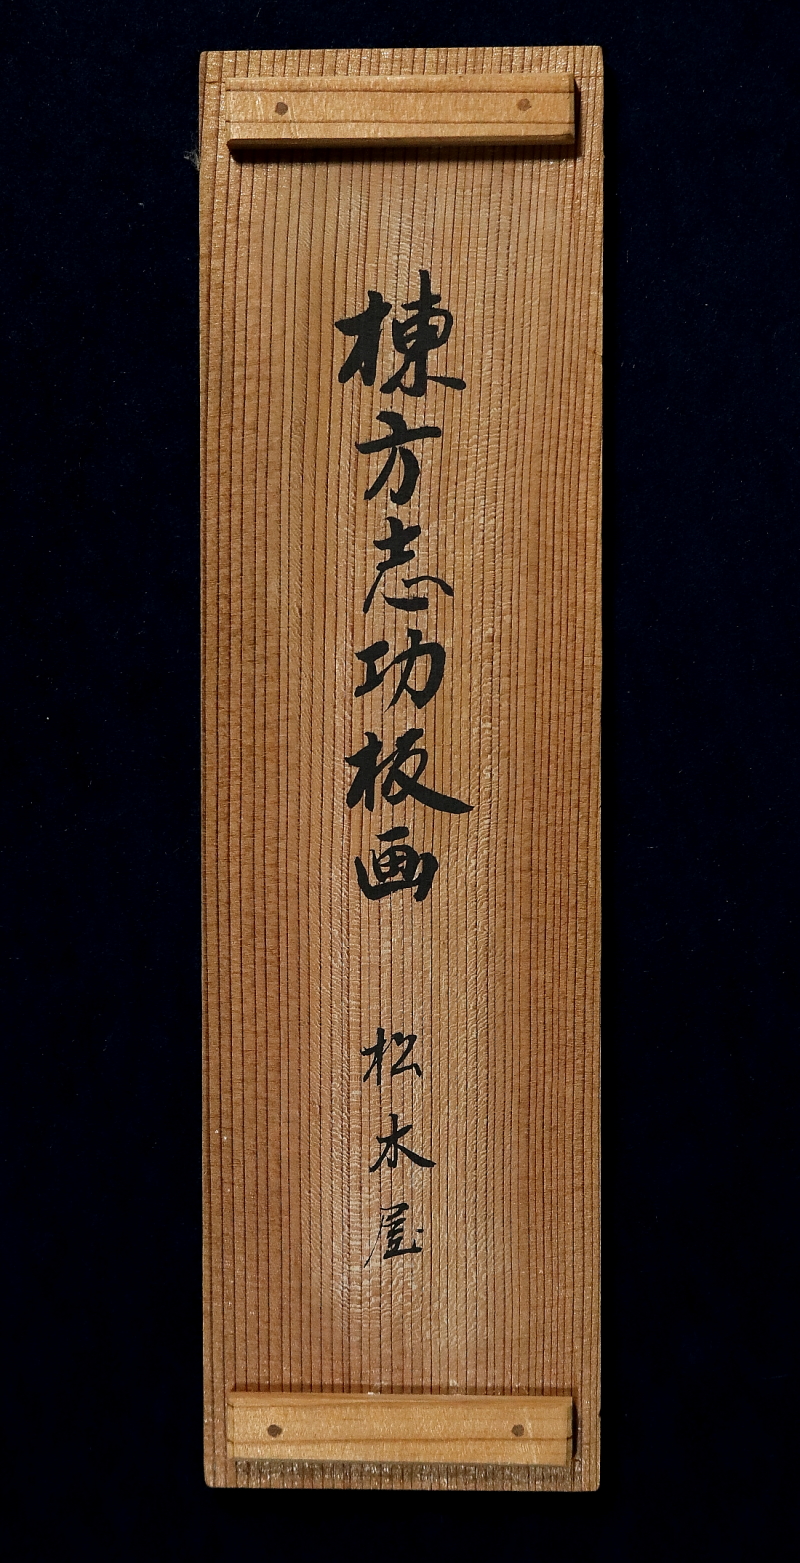 棟方志功板画
松木屋